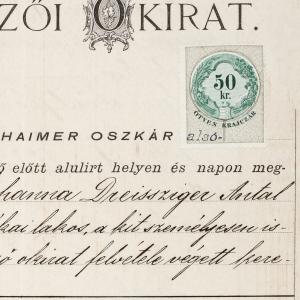 ZŐI OKIRAT.
50
kr.
ÖTVEN KRAJCZÁR
HAIMER OSZKÁR alsó-
ő előtt alulirt helyen és napon meg-
hanna Dreissziger Antal
kai lakos, a kit személyesen is-
ó okirat felvétele végett kere-